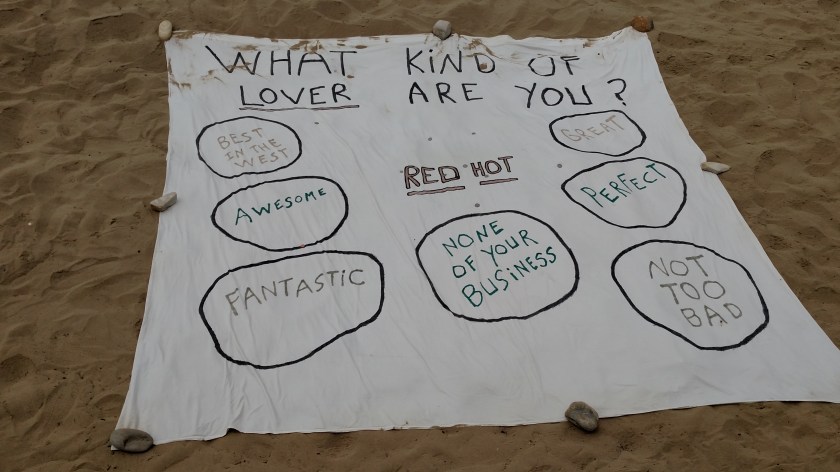 WHAT KIND OF
LOVER ARE YOU?
BEST
IN THE
WEST
GREAT
RED HOT
AWESOME
PERFECT
FANTASTIC
NONE
OF YOUR
BUSINESS
NOT
TOO
BAD